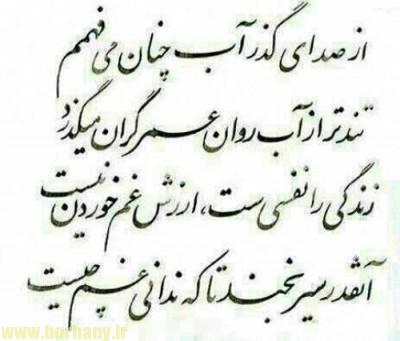 از صدای گذر آب چنان می فهمم
تندتر از آب روان عمر گران میگذرد
زندگی را نفسی ست، ارزش غم خوردن نیست
آنقدر سیر بخند تا که ندانی غم چیست
www.borhany.ir